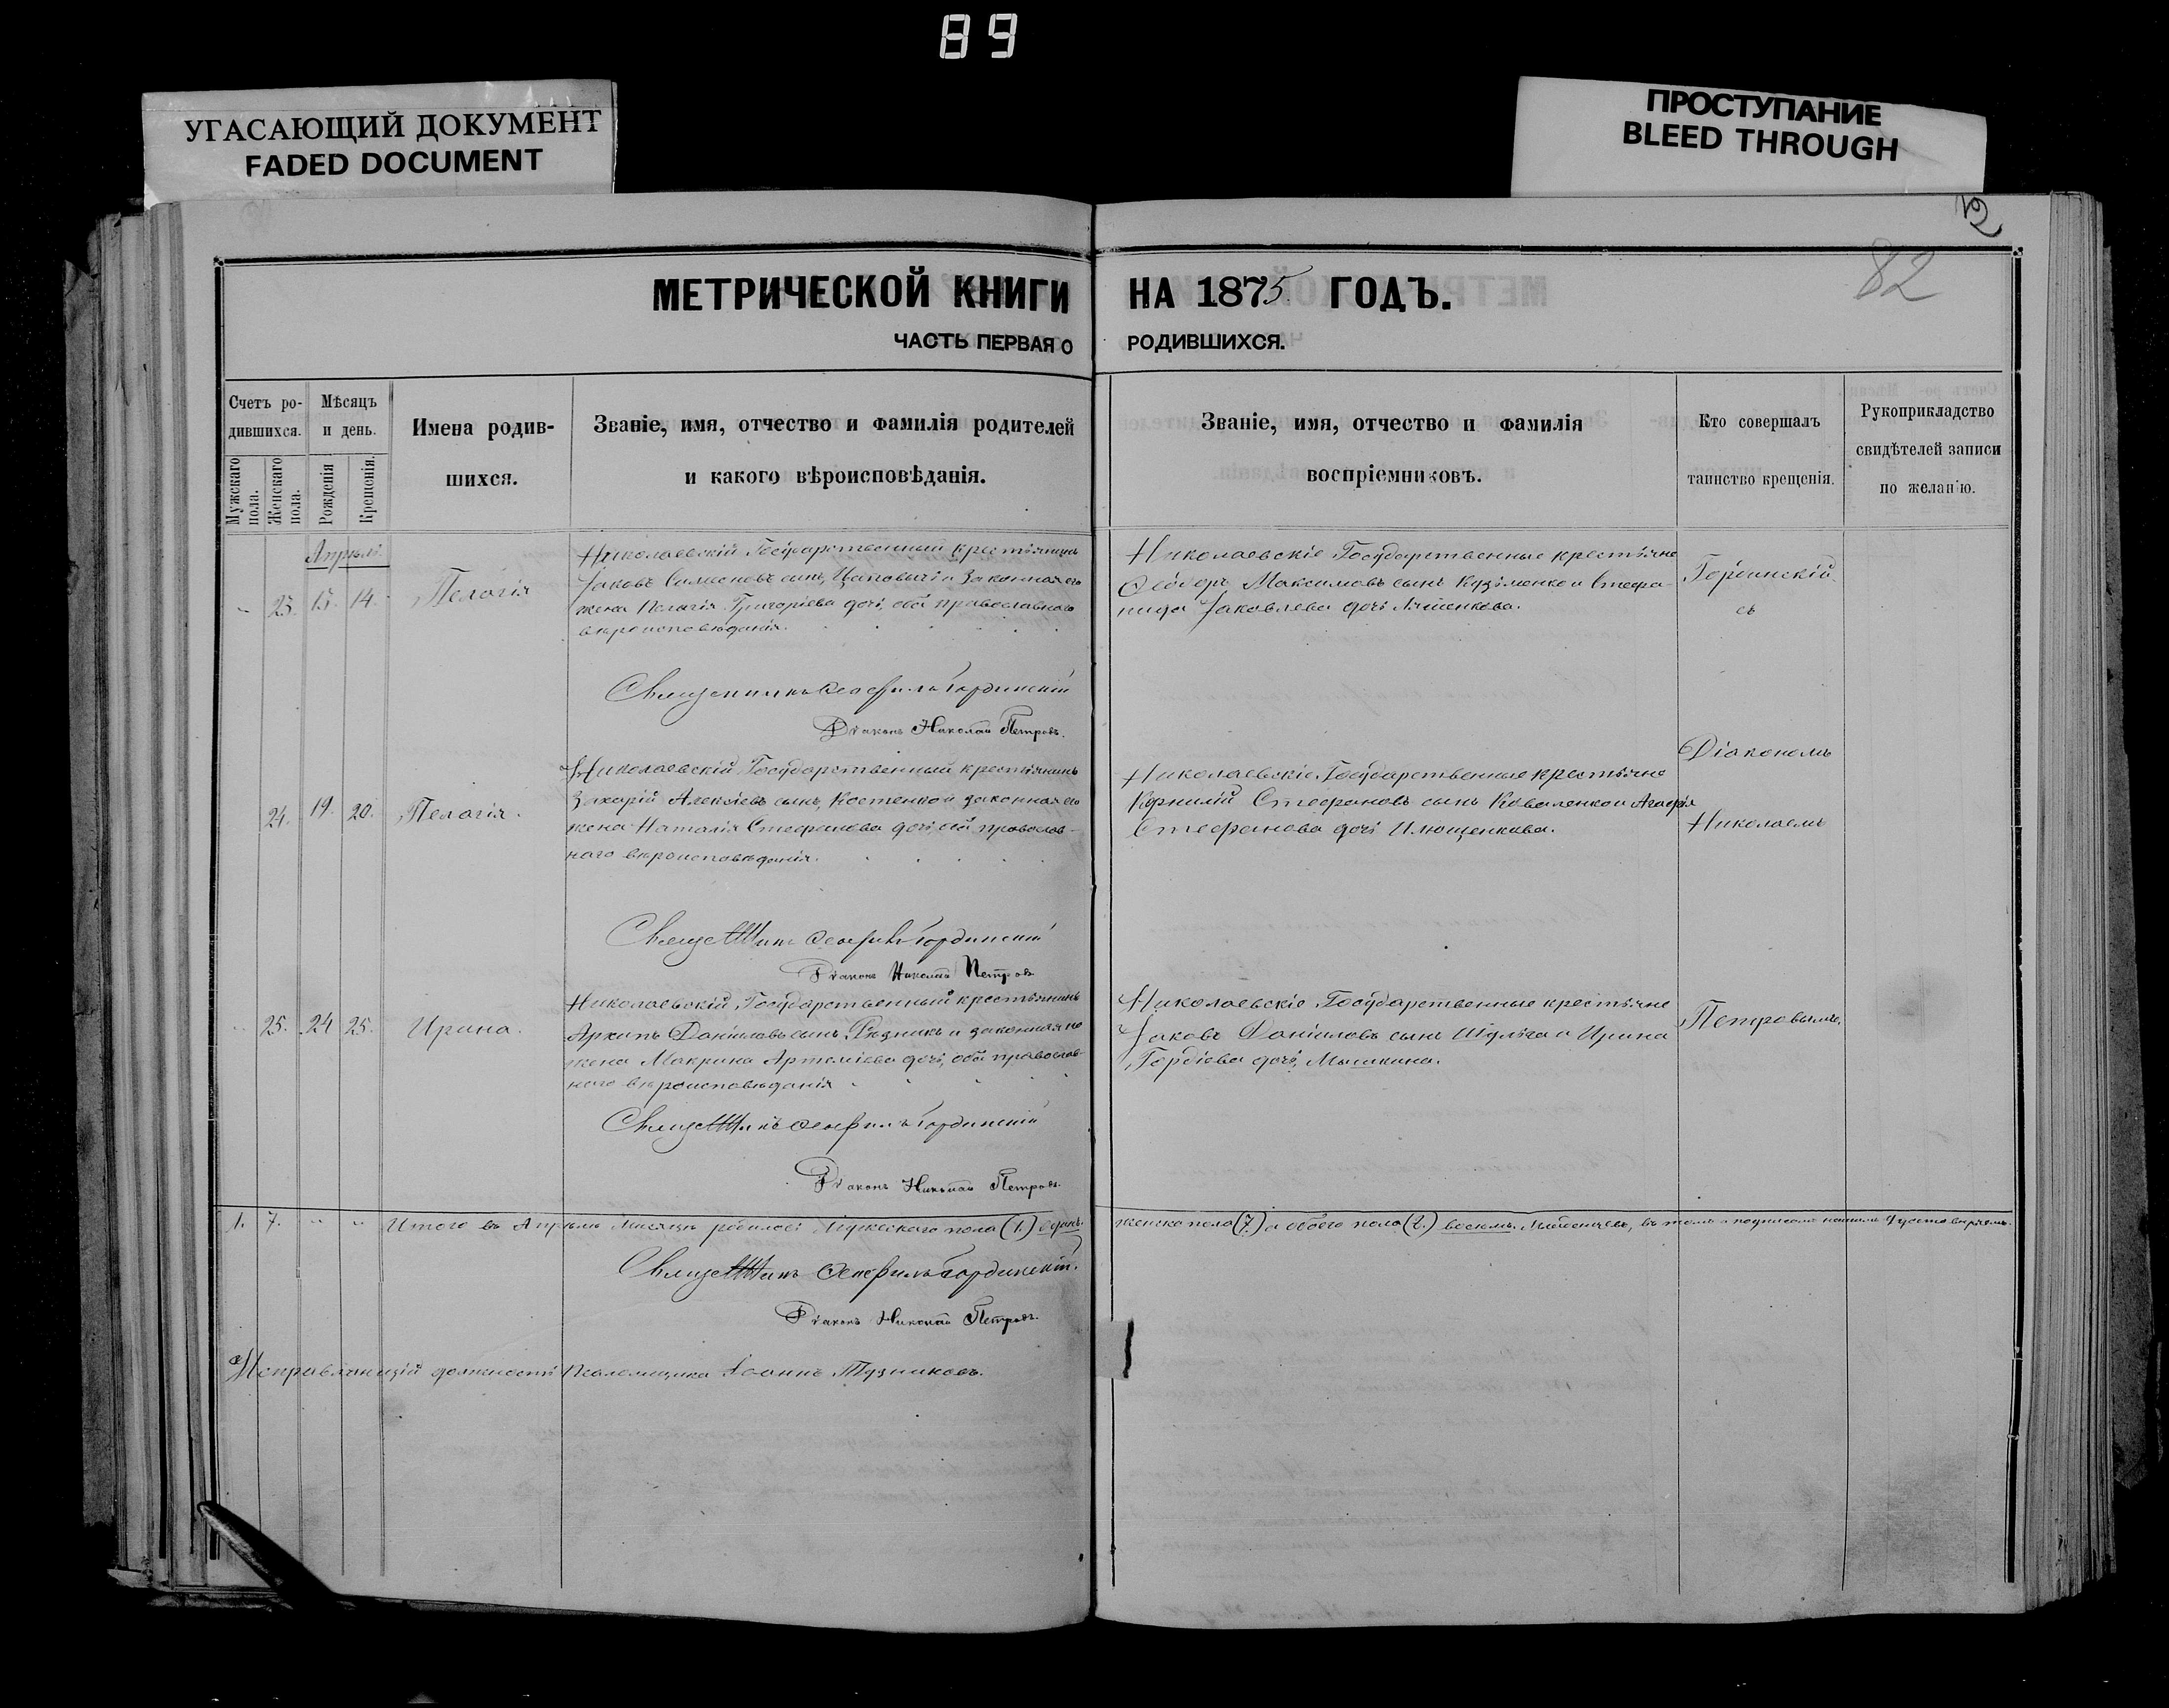 89
УГАСАЮЩИЙ ДОКУМЕНТ
FADED DOCUMENT
ПРОСТУПАНИЕ
BLEED THROUGH
82
МЕТРИЧЕСКОЙ КНИГИ НА 1875 ГОДЪ.
ЧАСТЬ ПЕРВАЯ О РОДИВШИХСЯ.
Счетъ ро-
дившихся.
Мужскаго пола.
Женскаго пола.
Мѣсяцъ
и день.
Рожденія
Крещенія.
Имена родив-
шихся.
Званіе, имя, отчество и фамилія родителей
и какого вѣроисповѣданія.
Званіе, имя, отчество и фамилія
воспріемниковъ.
Кто совершалъ
таинство крещенія.
Рукоприкладство
свидѣтелей записи
по желанію.
Апрѣль
23. 13. 14. Пелагія
Николаевскій Государственный крестьянинъ
Яковъ сынъ, и законная его
жена Пелагія Григоріева дочь, оба православнаго
вѣроисповѣданія.
Николаевскіе Государственные крестьяне
Ѳеодоръ Максимовъ сынъ Кузьменко и Стефа-
нида Яковлева дочь
Гординскій
съ
Священникъ Ѳеофилъ Гординскій
Діаконъ Николай Петровъ.
24. 19. 20. Пелагія.
Николаевскій Государственный крестьянинъ
Захарій Алексіевъ сынъ, Костенко и законная его
жена Наталія Стефанова дочь, оба православ-
наго вѣроисповѣданія.
Николаевскіе Государственные крестьяне
Корнилій Стефановъ сынъ Коваленко и Агафія
Стефанова дочь Илющенкова.
Діакономъ
Николаемъ
Священникъ Ѳеофилъ Гординскій
Діаконъ Николай Петровъ
25. 24 25. Ирина.
Николаевскій Государственный крестьянинъ
Архипъ Даніиловъ сынъ, Рѣзникъ и законная его
жена Макрина Артеміева дочь, оба православ-
наго вѣроисповѣданія
Николаевскіе Государственные крестьяне
Яковъ Даніиловъ сынъ Шульга и Ирина
Гордіева дочь, Мышкина.
Петровымъ.
Священникъ Ѳеофилъ Гординскій
Діаконъ Николай Петровъ.
1. 7. Итого въ Апрѣлѣ мѣсяцѣ родилось Мужескаго пола (1.) одинъ. женска пола (7.) а обоего пола восемь. Младенцевъ, въ томъ и подписомъ нашимъ удостовѣряемъ.
Священникъ Ѳеофилъ Гординскій.
Діаконъ Николай Петровъ.
Исправляющій должность Псаломщика Іоаннъ Тузниковъ.